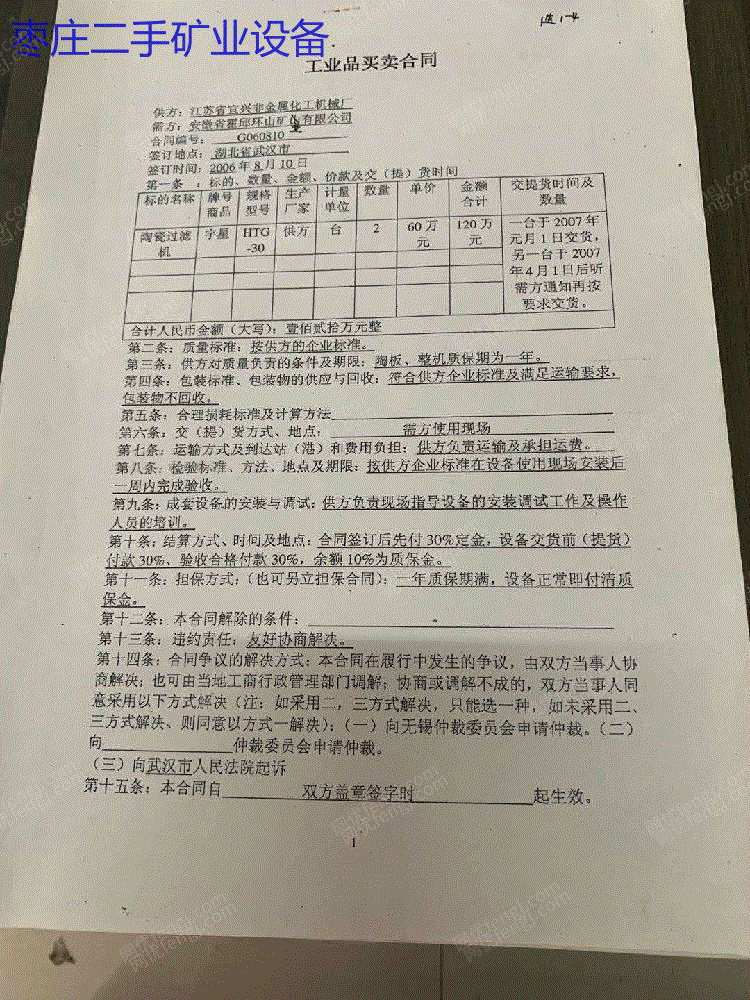 枣庄二手矿业设备
工业品买卖合同
供方：江苏省宜兴非金属化工机械厂
需方：安徽省霍邱环山矿业有限公司
合同编号： G060810
签订地点：湖北省武汉市
签订时间：2006年8月10日
第一条 ：标的、数量、金额、价款及交（提）货时间
标的名称 牌号商品 规格型号 生产厂家 计量单位 数量 单价 金额合计 交提货时间及数量
陶瓷过滤机 宇星 HTG-30 供方 台 2 60万元 120万元 一台于2007年元月1日交货，另一台于2007年4月1日后听需方通知再按要求交货。
合计人民币金额（大写）：壹佰贰拾万元整
第二条：质量标准：按供方的企业标准。
第三条：供方对质量负责的条件及期限：陶板、整机质保期为一年。
第四条：包装标准、包装物的供应与回收：符合供方企业标准及满足运输要求，
包装物不回收。
第五条：合理损耗标准及计算方法
第六条：交（提）货方式、地点： 需方使用现场
第七条：运输方式及到达站（港）和费用负担：供方负责运输及承担运费。
第八条：检验标准、方法、地点及期限：按供方企业标准在设备使用现场安装后
一周内完成验收。
第九条：成套设备的安装与调试：供方负责现场指导设备的安装调试工作及操作
人员的培训。
第十条：结算方式、时间及地点：合同签订后先付30%定金，设备交货前（提货）
付款30%、验收合格付款30%，余额10%为质保金。
第十一条：担保方式：（也可另立担保合同）：一年质保期满，设备正常即付清质
保金。
第十二条：本合同解除的条件：
第十三条：违约责任：友好协商解决。
第十四条：合同争议的解决方式：本合同在履行中发生的争议，由双方当事人协
商解决；也可由当地工商行政管理部门调解；协商或调解不成的，双方当事人同
意采用以下方式解决（注：如采用二，三方式解决，只能选一种，如未采用二、
三方式解决、则同意以方式一解决）：（一）向无锡仲裁委员会申请仲裁。（二）
向 仲裁委员会申请仲裁。
（三）向武汉市人民法院起诉
第十五条：本合同自 双方盖章签字时 起生效。
1